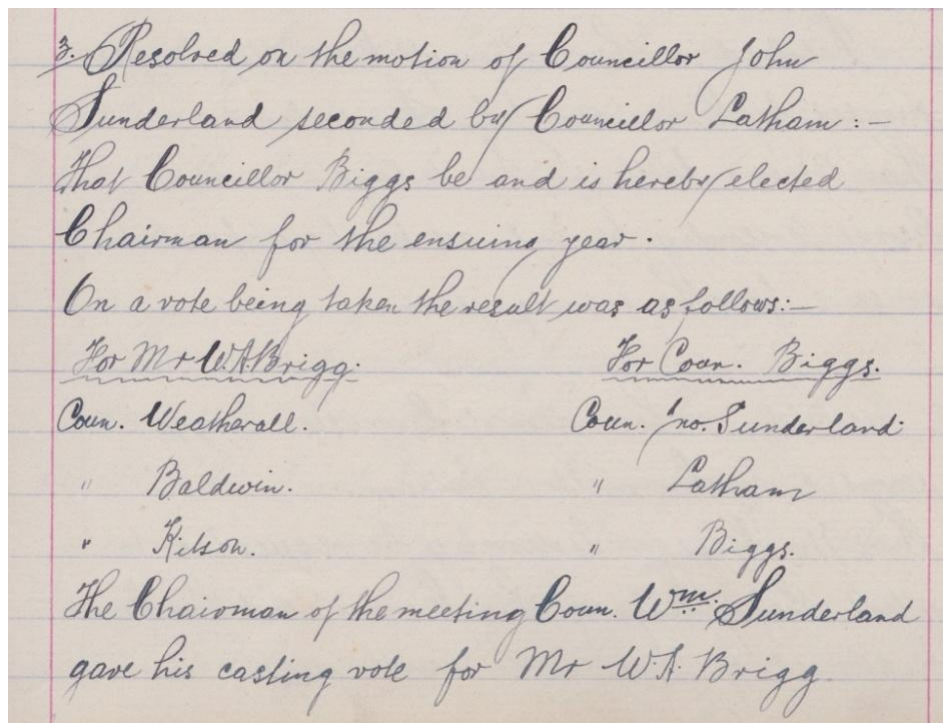 3. Resolved on the motion of Councillor John
Sunderland seconded by Councillor Latham:-
That Councillor Biggs be and is hereby elected
Chairman for the ensuing year.
On a vote being taken the result was as follows:-
For Mr W.A. Brigg. For Coun. Biggs.
Coun. Weatherall. Coun. Jno. Sunderland.
" Baldwin. " Latham
" Kitson. " Biggs.
The Chairman of the meeting Coun. Wm. Sunderland
gave his casting vote for Mr W.A. Brigg